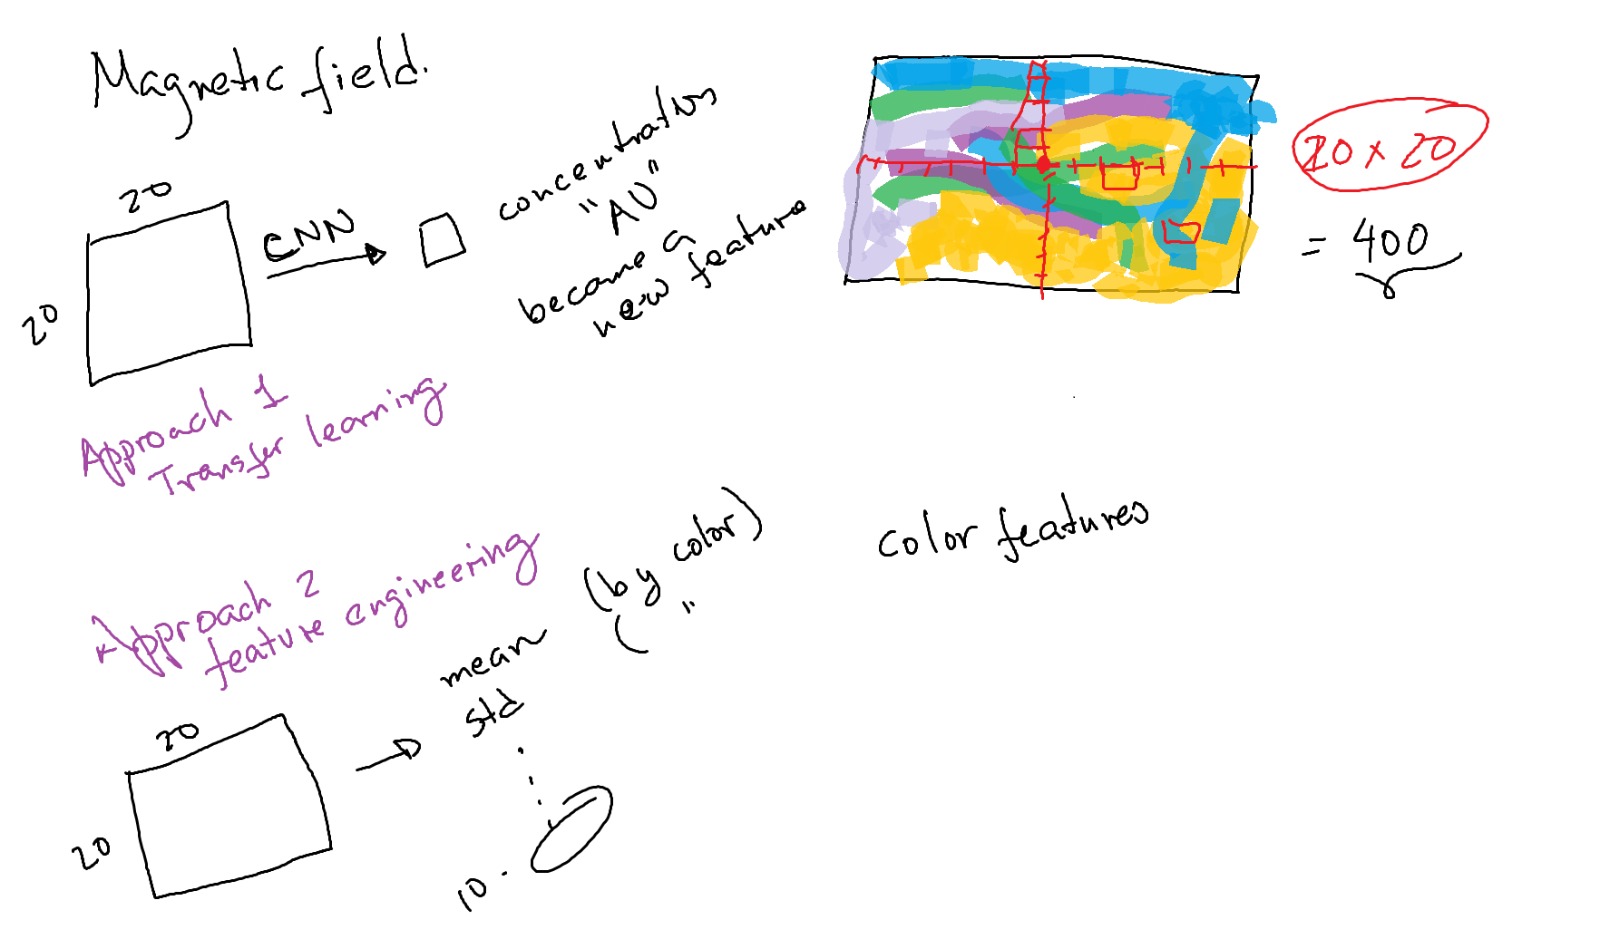 Magnetic field.
20
20
CNN
concentration
"AU"
became a
new feature
20 x 20
= 400
Approach 1
Transfer learning
Approach 2
feature engineering
20
20
mean (by color)
std ( "
10.
color features